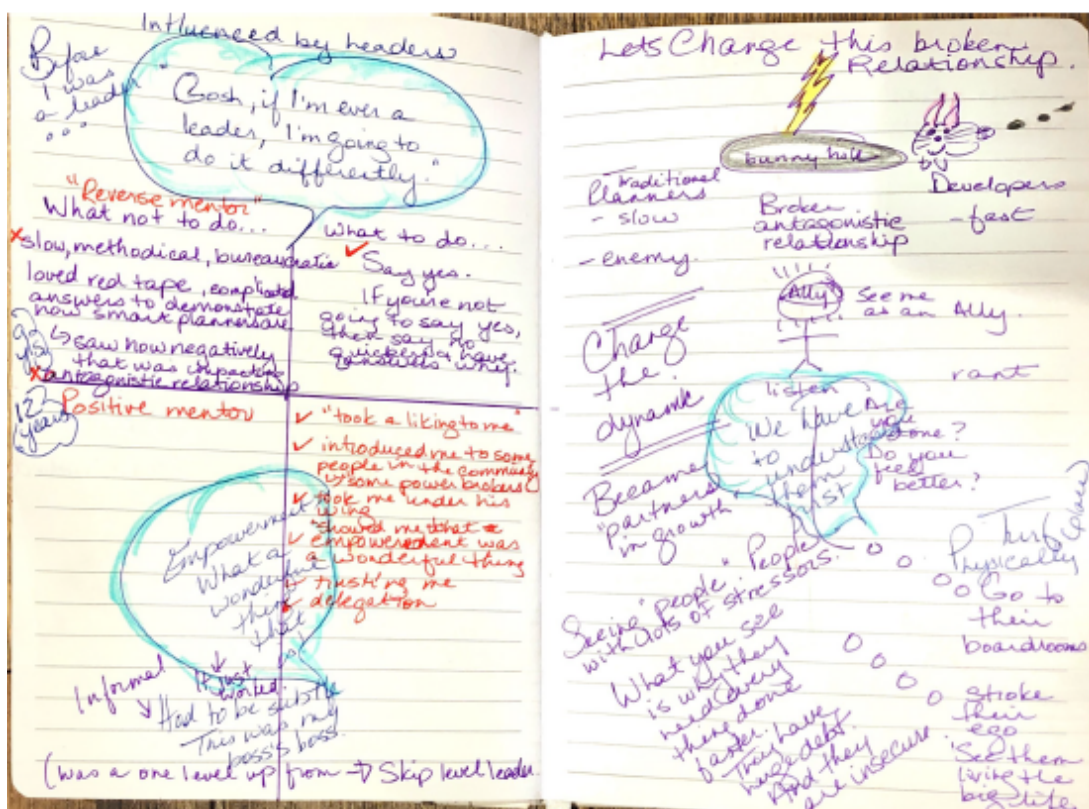 Influenced by leaders
Before
I was
a leader
...
"Gosh, if I'm ever a
leader, I'm going to
do it differently."
"Reverse mentor"
What not to do...
x slow, methodical, bureaucratic
loved red tape, complicated
answers to demonstrate
how smart planners are
↳ saw how negatively
that was impacting
x antagonistic relationship
What to do...
✓ Say yes.
If you're not
going to say yes,
then say no
quicker & have
answers why.
12
years
Positive mentor
✓ "took a liking to me"
✓ introduced me to some
people in the community
↳ some power brokers
✓ took me under his
wing
"showed me that
✓ empowerment was
a wonderful thing
✓ trusting me
✓ delegation
Empowerment
What a
wonderful
thing
that
is!
It just
worked.
Informal
Had to be subtle
This was my
boss's boss.
(was a one level up from → Skip level leader
Lets Change this broken
Relationship.
bunny hole
Traditional
Planners
- slow
- enemy
Broken
antagonistic
relationship
Developers
- fast
Ally
See me
as an Ally.
Change
the
dynamic
listen
We have
to
understand
them
1st
rant
Are
you
done?
Do you
feel
better?
Became
"partners
in growth
Seeing "people" People
with lots of stressors.
What you see
is why they
need every
thing done
faster.
They have
huge debt.
And they
are insecure
Turf
Physically
Go to
their
boardrooms
Stroke
their
ego
See them
living the
big life